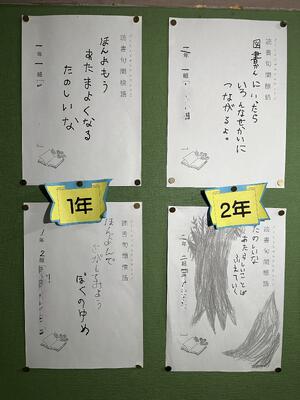 読書旬間標語
ほんよもう
あたまよくなる
たのしいな
一年一組
読書旬間標語
図書かんにいったら
いろんなせかいに
つながるよ。
二年一組
1年
2年
読書旬間標語
ほんよんで
さがしてみよう
ぼくのゆめ
1年2組
読書旬間標語
たのしいな
あたらしいことば
ふえていく
二年二組